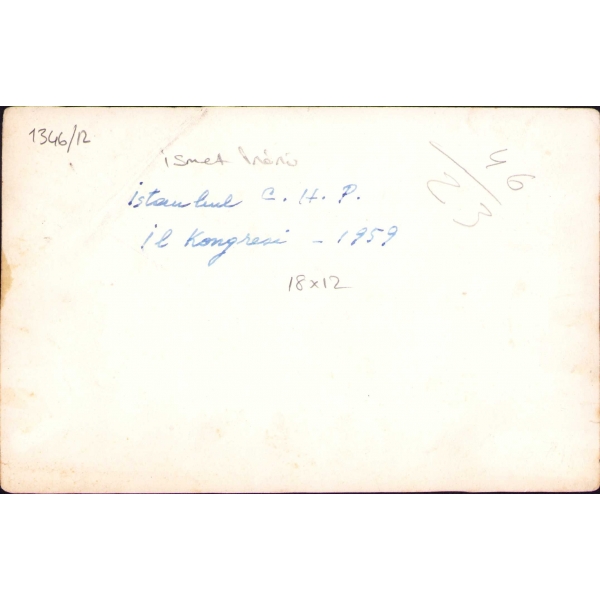 1346/12
ismet İnönü
46/23
istanbul C.H.P.
il Kongresi - 1959
18x12